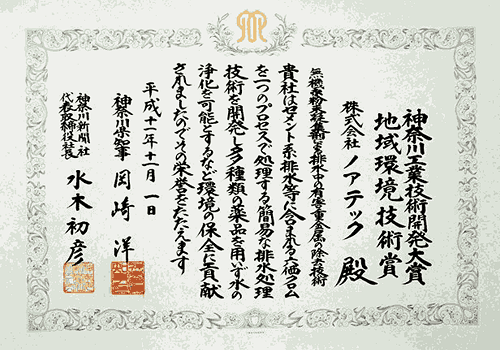 神奈川工業技術開発大賞
地域環境技術賞
株式会社 ノアテック 殿
排水中の有害重金属の除去技術
貴社はセメント系排水等に含まれる六価クロム
を一つのプロセスで処理する簡易な排水処理
技術を開発し多種類の薬品を用いず水の
浄化を可能とするなど環境の保全に貢献
されましたのでその栄誉をたたえます
平成十一年十一月一日
神奈川県知事 岡崎洋
神奈川新聞社
代表取締役社長 水木初彦